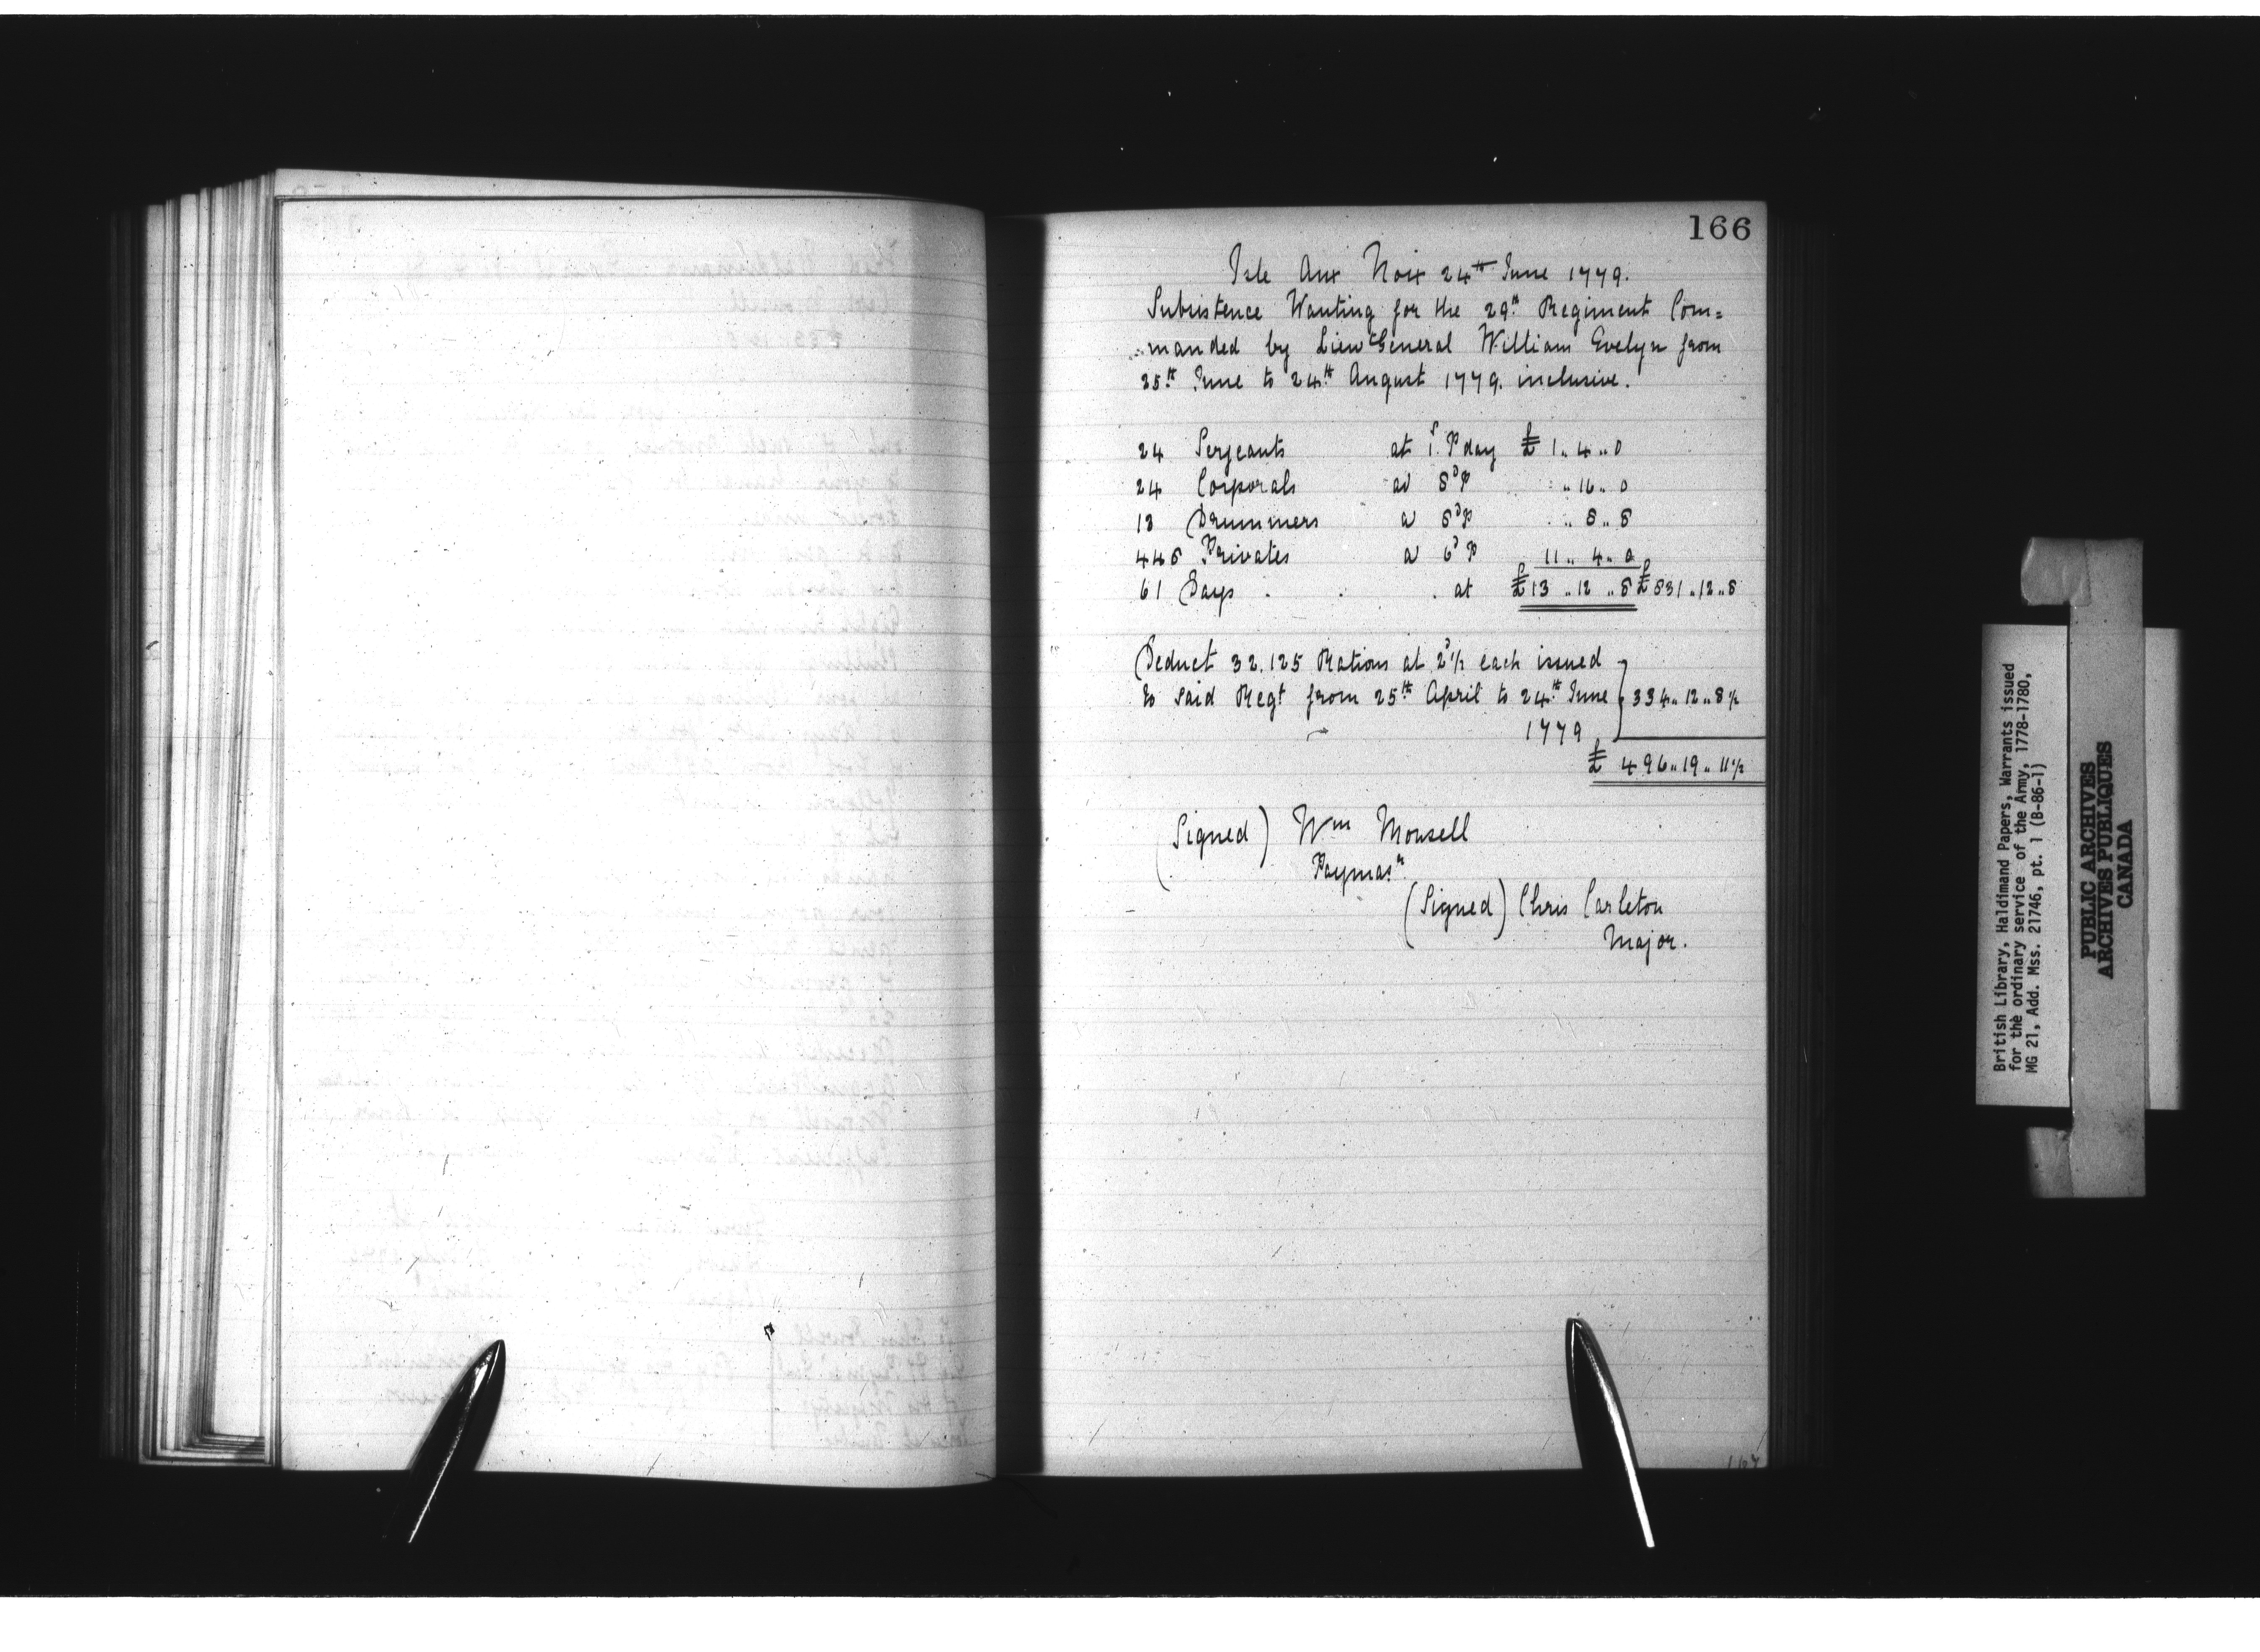 166
Isle Aux Noix 24th June 1779.
Subsistence Wanting for the 29th Regiment Com=
manded by Lieut General William Evelyn from
25th June to 24th August 1779. inclusive.
24 Sergeants at 1s P day £ 1 .. 4 .. 0
24 Corporals at 8d P .. 16 .. 0
13 Drummers a 8d P .. 8 .. 8
448 Privates a 6d P 11 .. 4 .. 0
61 Days . . . at £13 .. 12 .. 8 £831 .. 12 .. 8
Deduct 32.125 Rations at 2d ½ each issued
to said Regt from 25th April to 24th June 334 .. 12 .. 8½
1779
£ 496 .. 19 .. 11½
(Signed) Wm Monsell
Paymasr
(Signed) Chris Carleton
Major.
167
British Library, Haldimand Papers, Warrants issued
for the ordinary service of the Army, 1778-1780,
MG 21, Add. Mss. 21746, pt. 1 (B-86-1)
PUBLIC ARCHIVES
ARCHIVES PUBLIQUES
CANADA